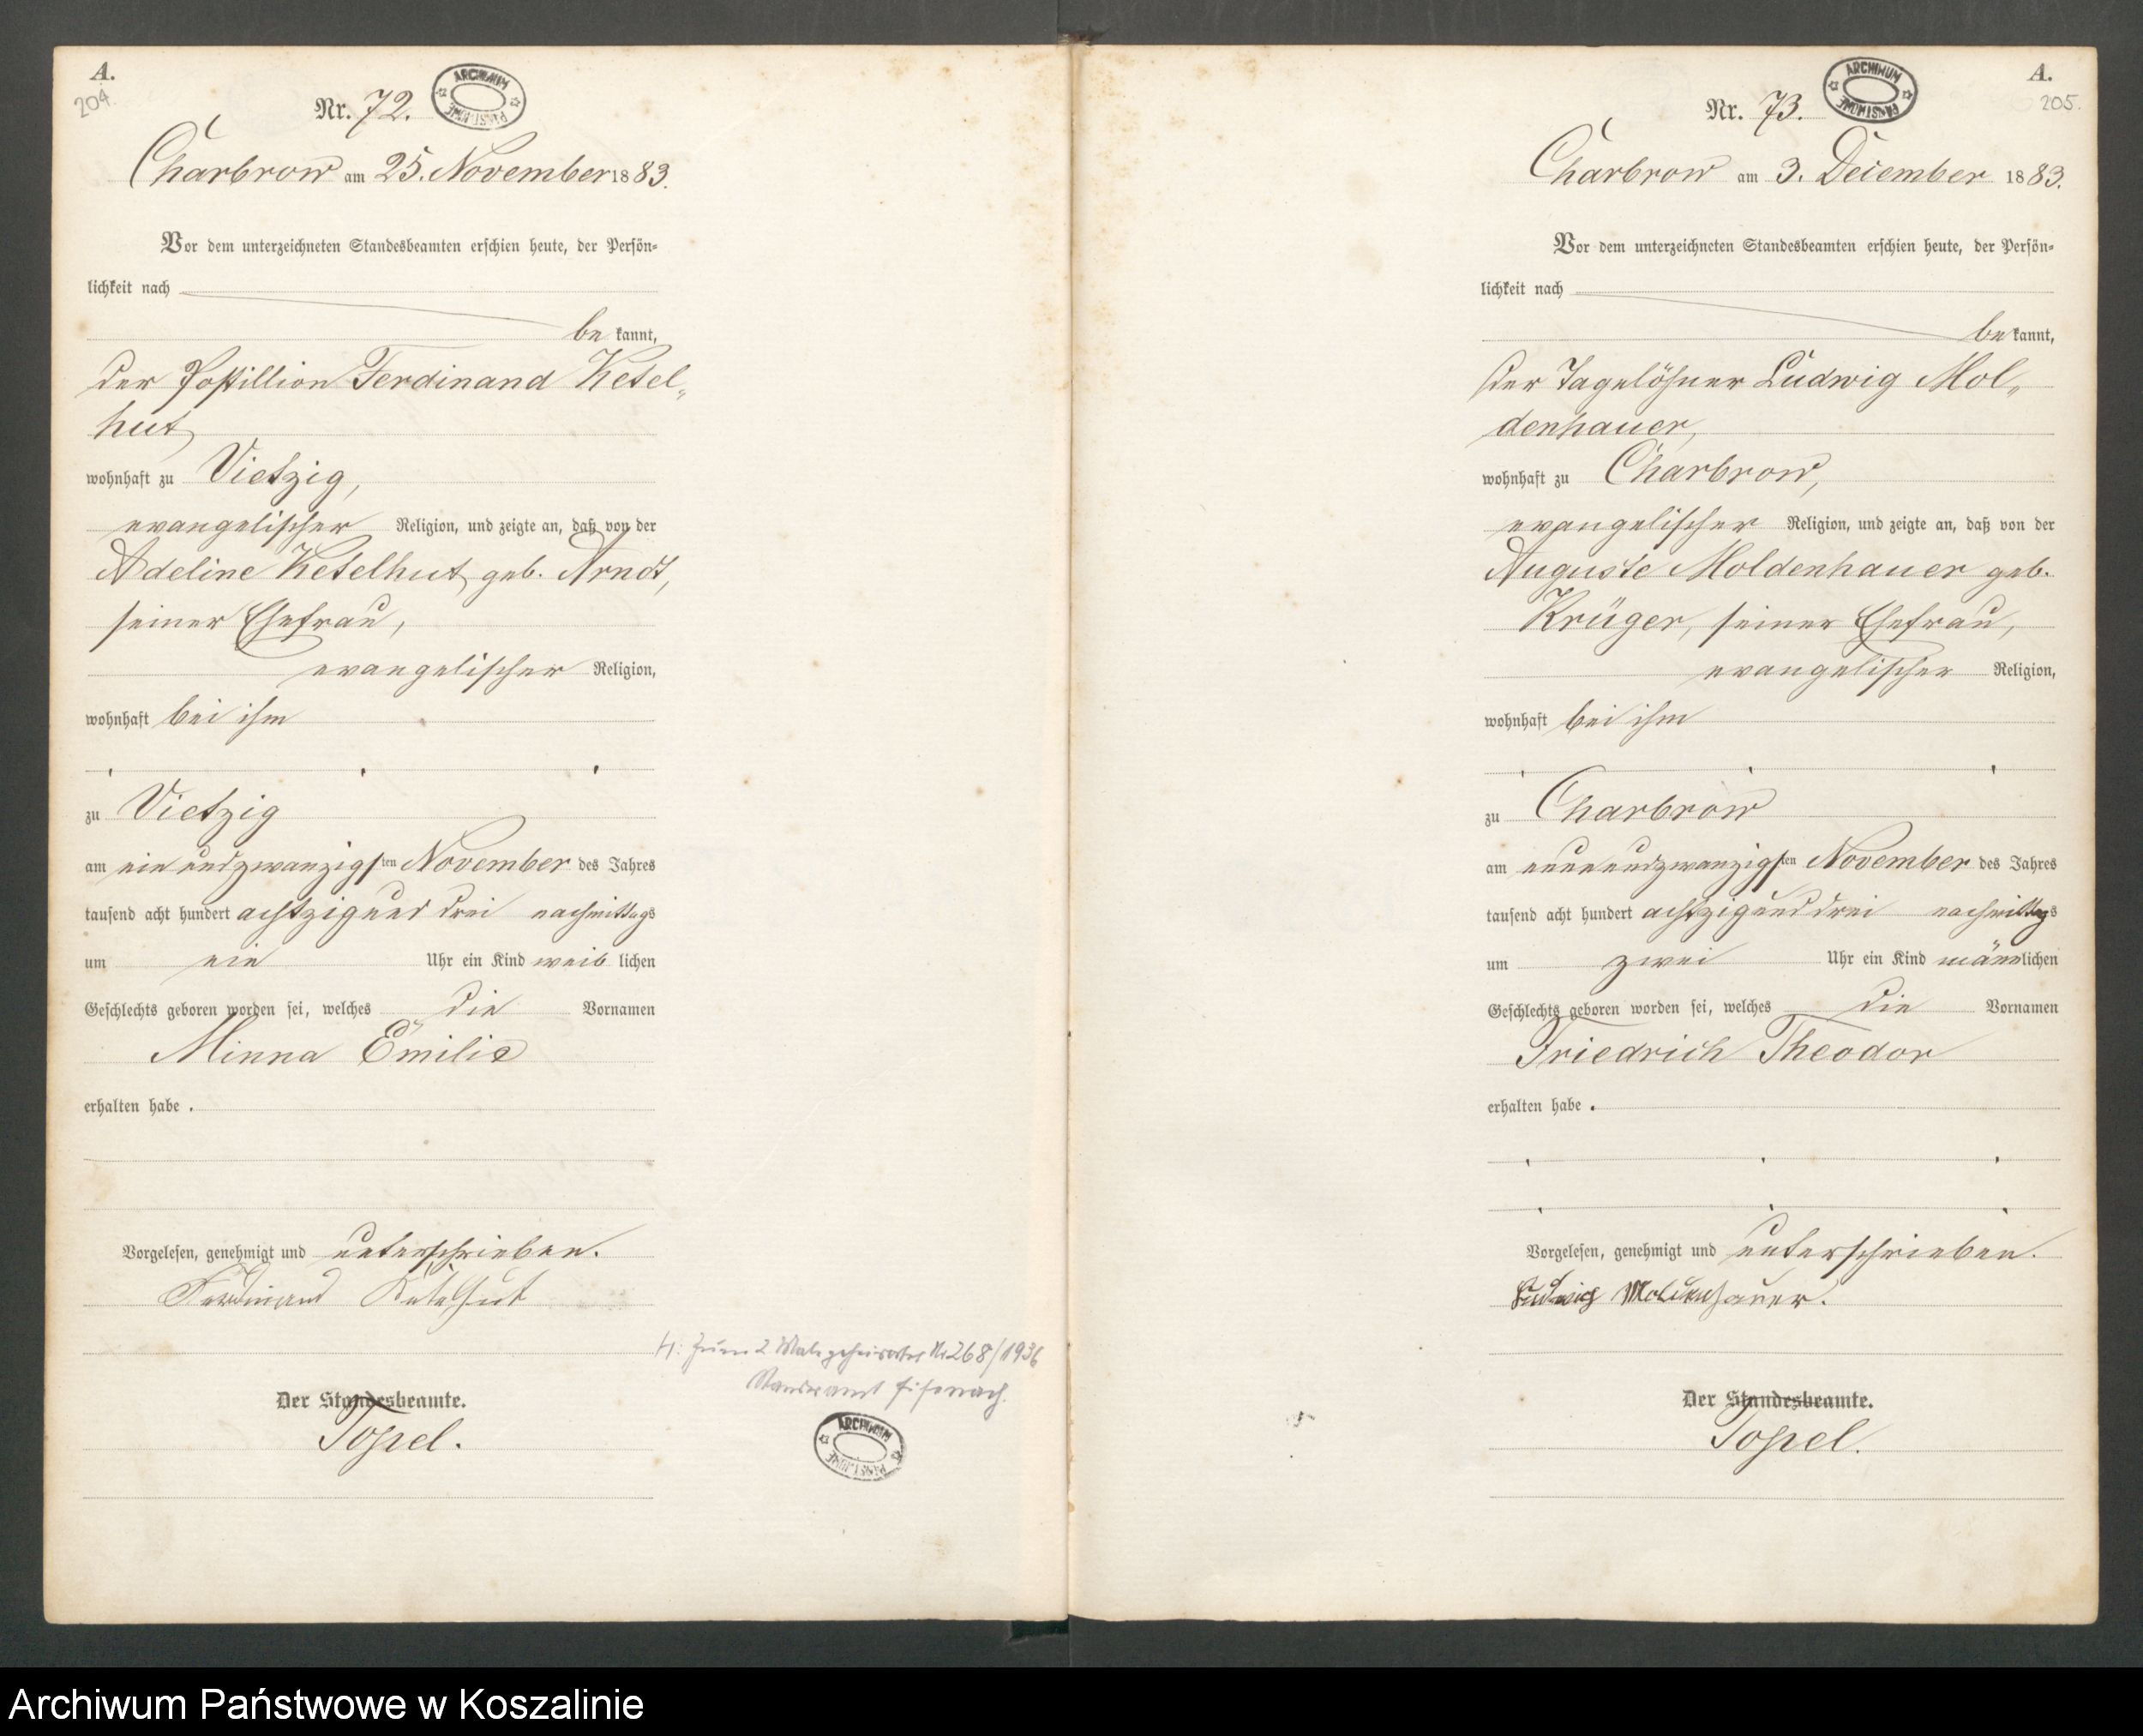 A.
204.
Nr. 72.
ARCHIWUM PAŃSTWOWE
Charbrow am 25. November 1883.
Vor dem unterzeichneten Standesbeamten erschien heute, der Persön-
lichkeit nach
be kannt,
der Postillion Ferdinand Ketel-
hut
wohnhaft zu Vietzig,
evangelischer Religion, und zeigte an, daß von der
Adeline Ketelhut geb. Arndt,
seiner Ehefrau,
evangelischer Religion,
wohnhaft bei ihm
zu Vietzig
am ein und zwanzigsten November des Jahres
tausend acht hundert achtzig und drei nachmittags
um ein Uhr ein Kind weiblichen
Geschlechts geboren worden sei, welches die Vornamen
Minna Emilie
erhalten habe.
Vorgelesen, genehmigt und unterschrieben.
Ferdinand Ketelhut
H: Zum 2 Male geheiratet Nr 268/1936
Standesamt Eisenach.
Der Standesbeamte.
Topel.
ARCHIWUM PAŃSTWOWE
A.
205.
Nr. 73.
ARCHIWUM PAŃSTWOWE
Charbrow am 3. December 1883.
Vor dem unterzeichneten Standesbeamten erschien heute, der Persön-
lichkeit nach
be kannt,
der Tagelöhner Ludwig Mol-
denhauer,
wohnhaft zu Charbrow,
evangelischer Religion, und zeigte an, daß von der
Auguste Moldenhauer geb.
Krüger, seiner Ehefrau,
evangelischer Religion,
wohnhaft bei ihm
zu Charbrow
am neunundzwanzigsten November des Jahres
tausend acht hundert achtzig und drei nachmittags
um zwei Uhr ein Kind männlichen
Geschlechts geboren worden sei, welches die Vornamen
Friedrich Theodor
erhalten habe.
Vorgelesen, genehmigt und unterschrieben.
Ludwig Moldenhauer.
Der Standesbeamte.
Topel.
Archiwum Państwowe w Koszalinie